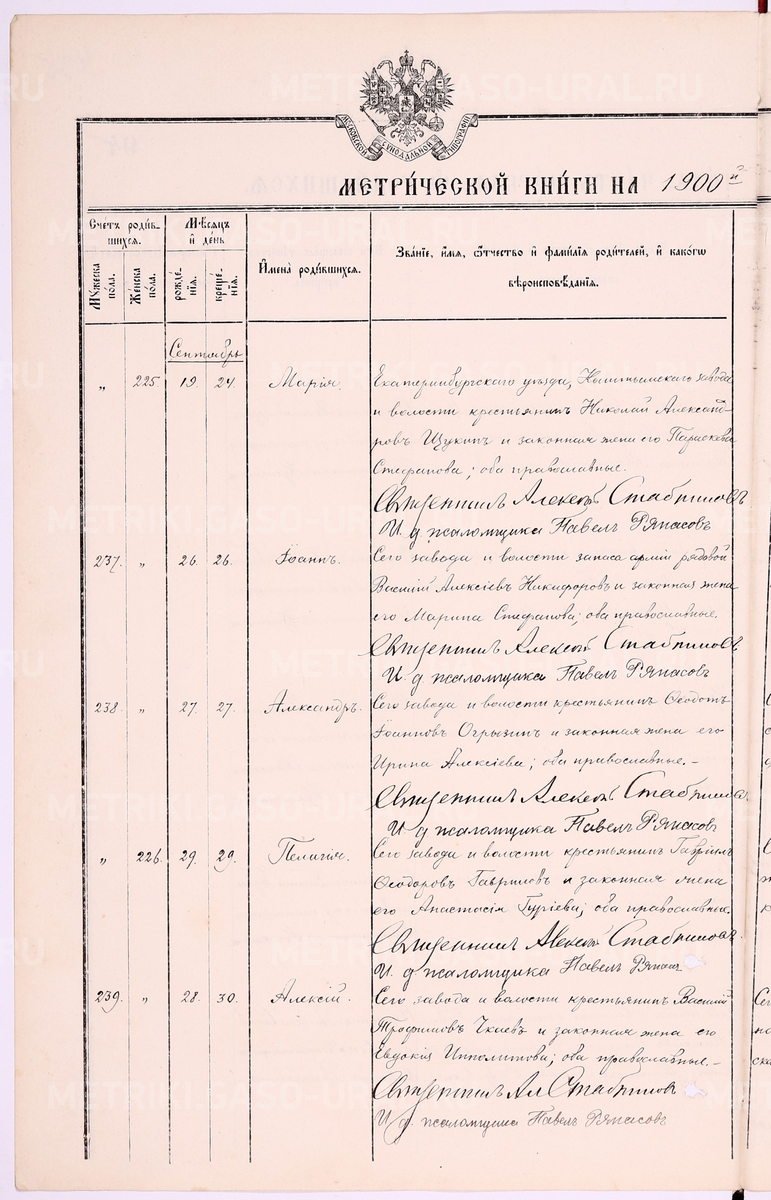 МОСКОВСКОЙ СѴНОДАЛЬНОЙ ТИПОГРАФІИ
МЕТРИЧЕСКОЙ КНИГИ НА 1900й
Счетъ родив-
шихся.
Мѣсяцъ
и день
Имена родившихся.
Званіе, имя, отчество и фамилія родителей, и какого
вѣроисповѣданія.
Мужеска
пола.
Женска
пола.
рожде-
нія.
креще-
нія.
Сентябрь
„ 225. 19. 24. Марія. Екатеринбургскаго уѣзда, Кыштымскаго завода
и волости крестьянинъ Николай Александ-
ровъ Щукинъ и законная жена его Параскева
Стефанова; оба православные.
Священникъ Алексѣй
И. д. псаломщика Павелъ Ряпасовъ
237. „ 26. 26. Іоаннъ. Сего завода и волости запаса арміи рядовой
Василій Алексіевъ Никифоровъ и законная жена
его Марина Стефанова; оба православные.
Священникъ Алексѣй
И д псаломщика Павелъ Ряпасовъ
238. „ 27. 27. Александръ. Сего завода и волости крестьянинъ Ѳеодотъ
Іоанновъ Огрызинъ и законная жена его
Ирина Алексіева; оба православные.-
Священникъ Алексѣй
И д псаломщика Павелъ Ряпасов
„ 226. 29. 29. Пелагія. Сего завода и волости крестьянинъ Гавріилъ
Ѳеодоровъ Гавриловъ и законная жена
его Анастасія Гуріева; оба православные.
Священникъ Алексѣй
И. д псаломщика Павелъ
239. „ 28. 30. Алексій. Сего завода и волости крестьянинъ Василій
Трофимовъ Чкаевъ и законная жена его
Евдокія Ипполитова; оба православные.-
Священникъ Ал
И. д. псаломщика Павелъ Ряпасовъ